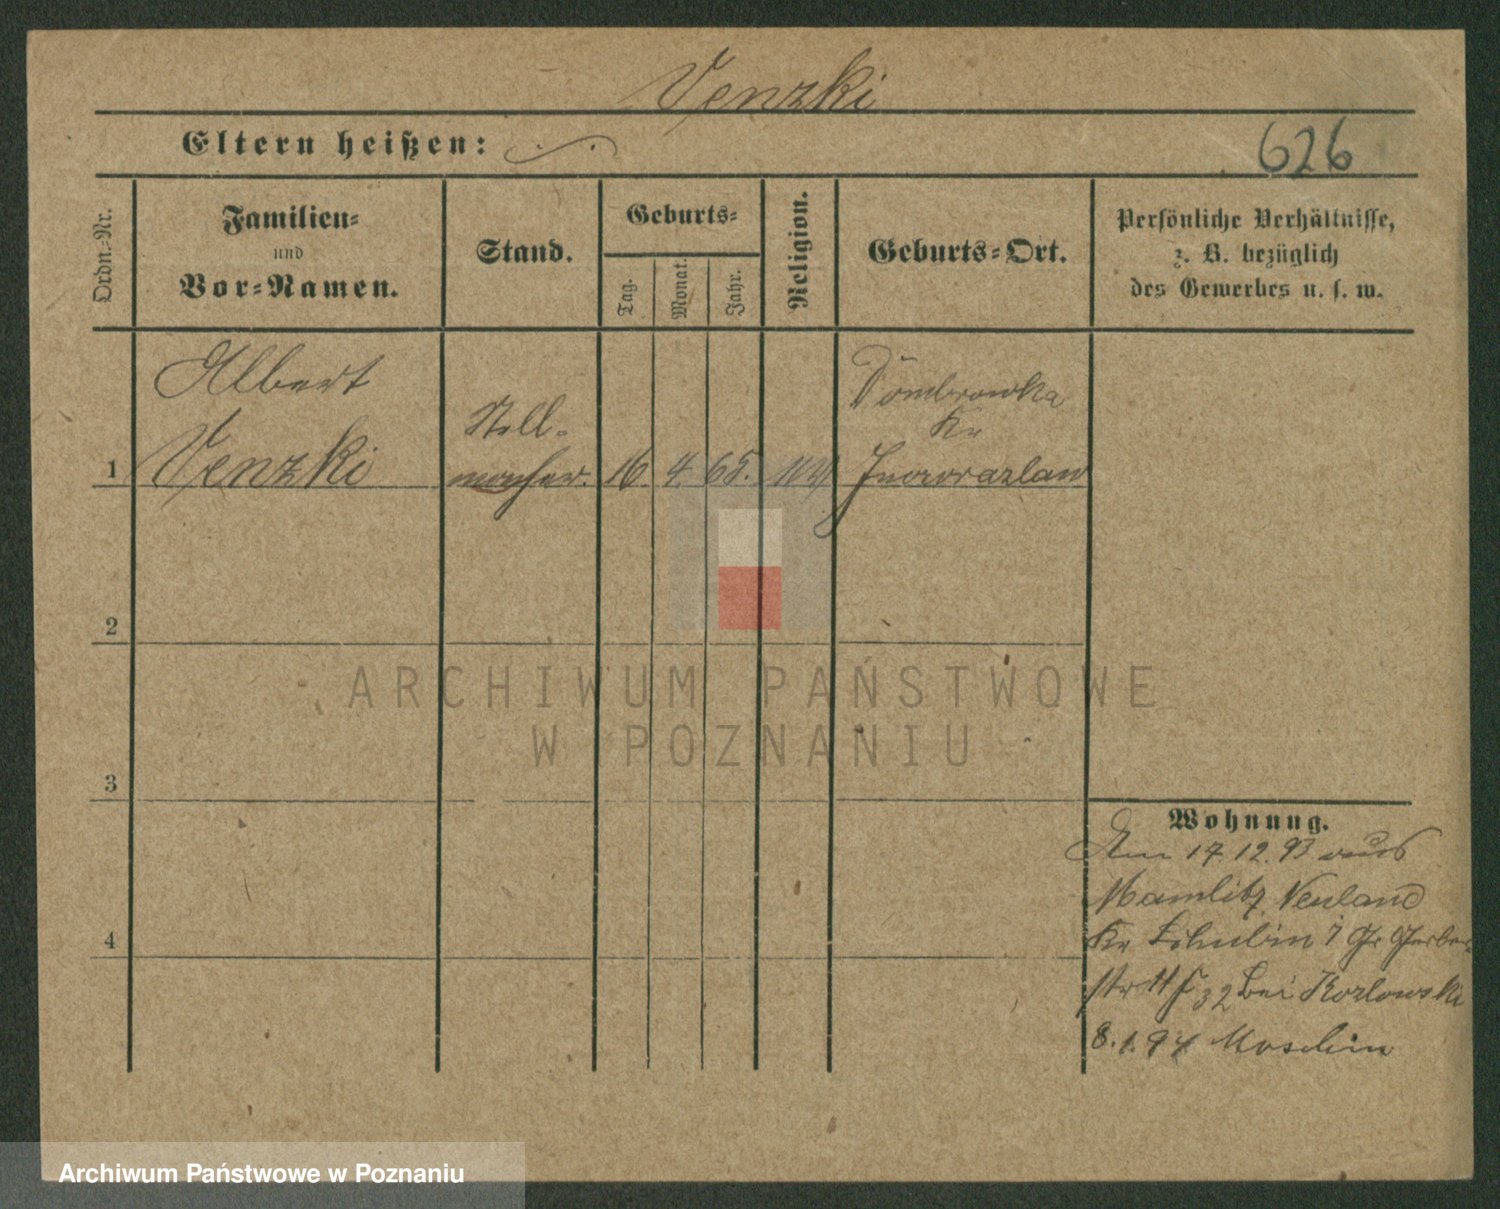 Venzki
Eltern heißen:
626
Ordn.-Nr.
Familien-
und
Vor-Namen.
Stand.
Geburts-
Tag.
Monat.
Jahr.
Religion.
Geburts-Ort.
Persönliche Verhältnisse,
z. B. bezüglich
des Gewerbes u. s. w.
Albert
Venzki
Stell-
macher.
1
16. 4. 65.
Dombrowka
Kr
Inowrazlaw
2
ARCHIWUM PAŃSTWOWE
W POZNANIU
3
Wohnung.
Am 17.12.93 aus
Mamlitz Neuland
Kr Schubin Gr Gerber-
4
str bei Kozlowski
8.1.94 Moschin
Archiwum Państwowe w Poznaniu